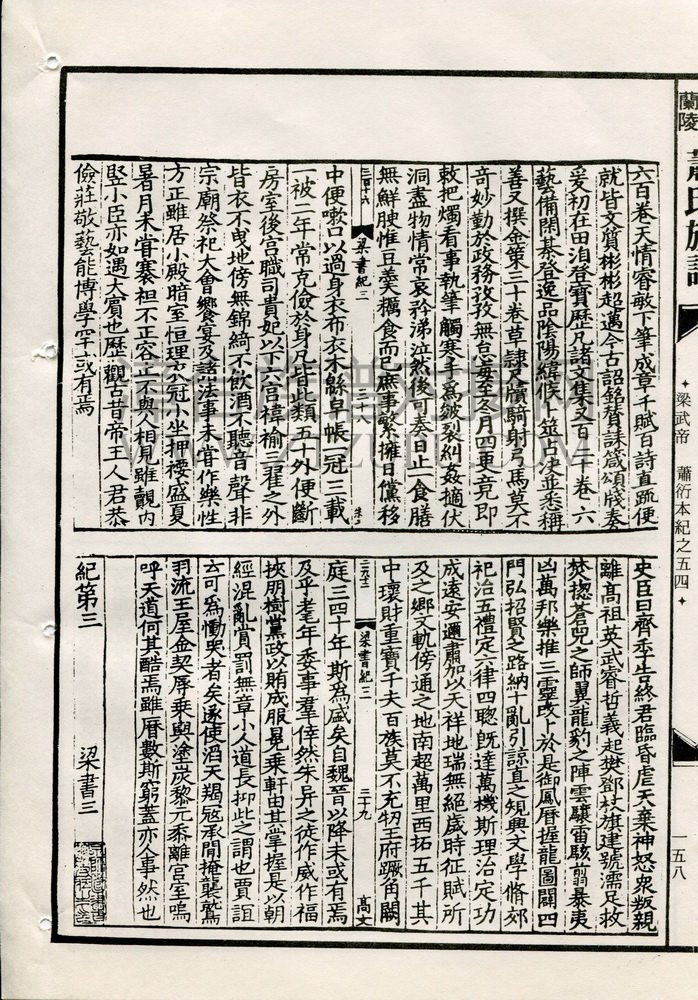 蘭陵 蕭氏族譜
梁武帝 蕭衍本紀之五四
一五八
六百卷天情睿敏下筆成章千賦百詩直疏便
就皆文質彬彬超邁今古詔銘贊誄箴頌牋奏
爰初在田洎登寶歷凡諸文集又百二十卷六
藝備閑棊登逸品陰陽緯候卜筮占決並悉稱
善又撰金策三十卷草隸尺牘騎射弓馬莫不
奇妙勤於政務孜孜無怠每至冬月四更竟即
敕把燭看事執筆觸寒手為皴裂糾姦擿伏
洞盡物情常哀矜涕泣然後可奏日止一食膳
無鮮腴惟豆羹糲食而已庶事繁擁日儻移
三百十六 梁書紀三 三十八
中便嗽口以過身衣布衣木緜皁帳一冠三載
一被二年常克儉於身凡皆此類五十外便斷
房室後宮職司貴妃以下六宮褘褕三翟之外
皆衣不曳地傍無錦綺不飲酒不聽音聲非
宗廟祭祀大會饗宴及諸法事未嘗作樂性
方正雖居小殿暗室恒理衣冠小坐押䙅盛夏
暑月未嘗褰袒不正容止不與人相見雖覿內
豎小臣亦如遇大賓也歷觀古昔帝王人君恭
儉莊敬藝能博學罕或有焉
史臣曰齊季告終君臨昏虐天棄神怒衆叛親
離高祖英武睿哲義起樊鄧杖旗建號濡足救
焚揔蒼兕之師翼龍豹之陣雲驤雷駭翦暴夷
凶萬邦樂推三靈改卜於是御鳳曆握龍圖闢四
門弘招賢之路納十亂引諒直之規興文學脩郊
祀治五禮定六律四聰旣達萬機斯理治定功
成遠安邇肅加以天祥地瑞無絕歲時征賦所
及之鄉文軌傍通之地南超萬里西拓五千其
中瓌財重寶千夫百族莫不充牣王府蹶角闕
梁書紀三 三十九 高文
庭三四十年斯為盛矣自魏晉以降未或有焉
及乎耄年委事羣倖然朱异之徒作威作福
挾朋樹黨政以賄成服冕乘軒由其掌握是以朝
經混亂賞罰無章小人道長抑此之謂也賈誼
云可為慟哭者矣遂使滔天羯寇承間掩襲鷲
羽流王屋金契辱乘輿塗炭黎元黍離宮室嗚
呼天道何其酷焉雖曆數斯窮蓋亦人事然也
紀第三 梁書三